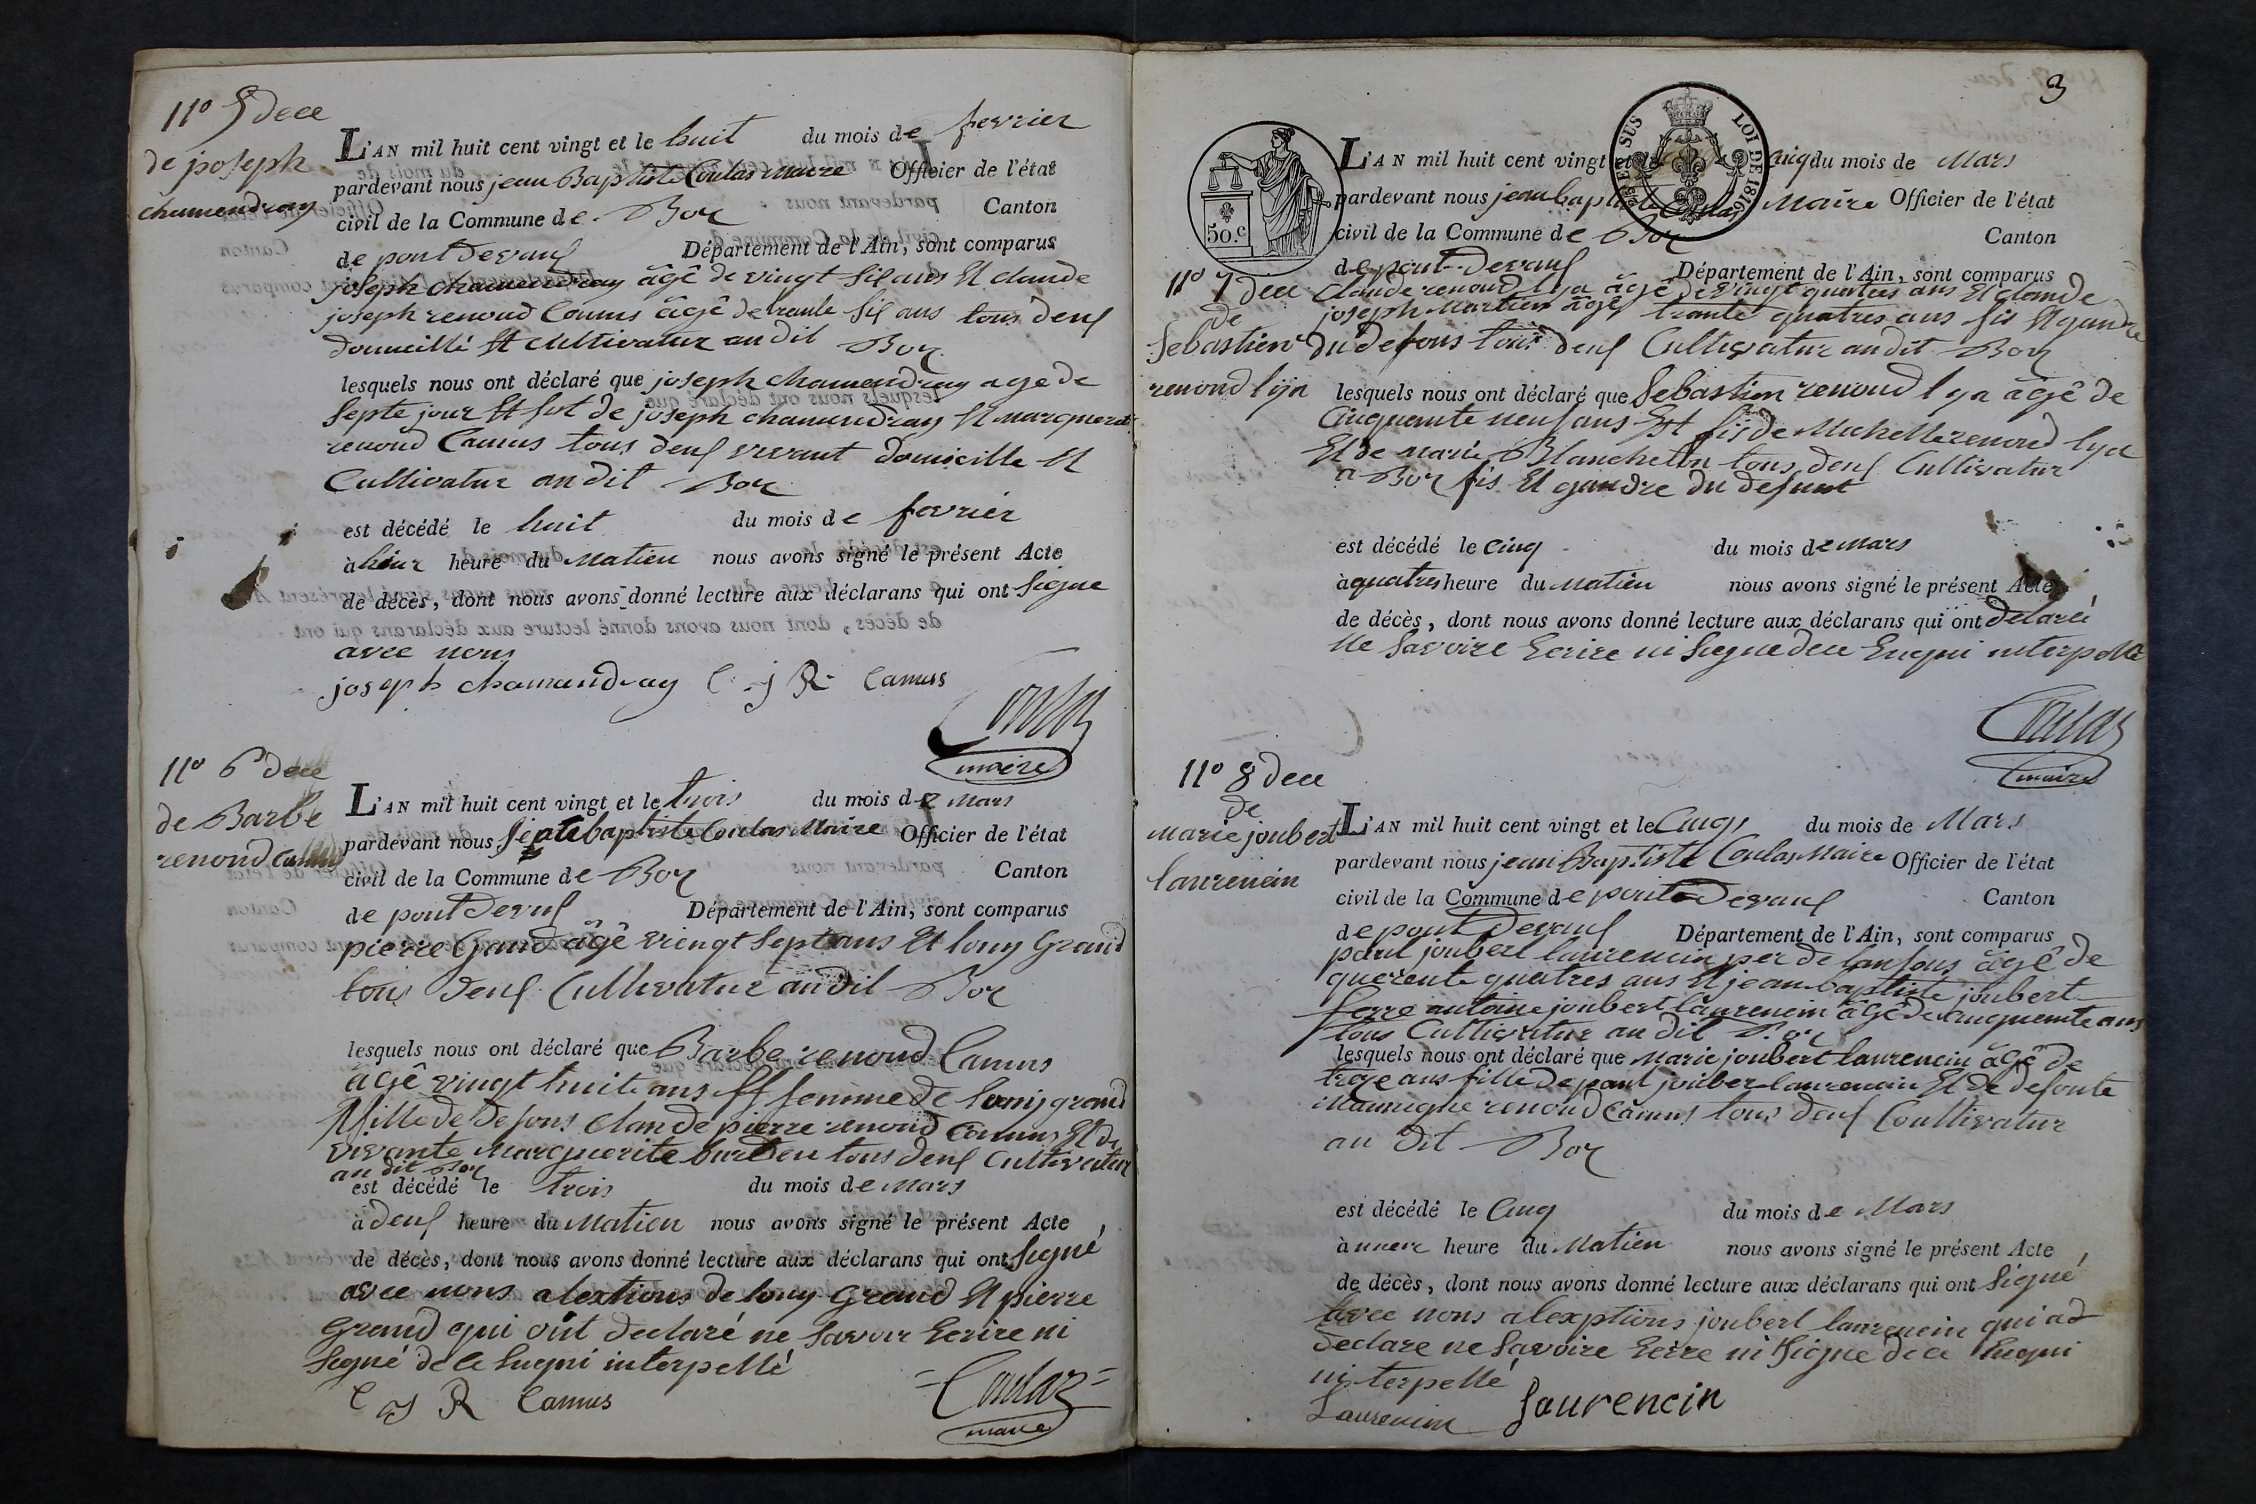 11º 5 dece
de joseph
chamendray
L'AN mil huit cent vingt et le huit du mois de fevrier
pardevant nous jean Baptiste Coulas Maire Officier de l'état
civil de la Commune de Boz Canton
de pont Devaux Département de l'Ain, sont comparus
joseph chamendray âgê de vingt six ans Et claude
joseph renoud Camus âgê de trante six ans tous deux
domicillé Et cultivatur au dit Boz
lesquels nous ont déclaré que joseph chamendray age de
septe jour Et fix de joseph chamendray Et marguerite
renoud Camus tous deux vivant domicille Et
Cultivatur au dit Boz
est décédé le huit du mois de fevrier
à heure du Matien nous avons signé le présent Acte
de décès, dont nous avons donné lecture aux déclarans qui ont signe
avec nous
joseph chamandray C j R Camus
Coulas
maire
11º 6 dece
de Barbe
renoud Camus
L'AN mil huit cent vingt et le trois du mois de mars
pardevant nous jean baptiste Coulas Maire Officier de l'état
civil de la Commune de Boz Canton
de pont Devaux Département de l'Ain, sont comparus
pierre Grand âgê viengt sept ans Et louy Grand
tous deux Cultivatur au dit Boz
lesquels nous ont déclaré que Barbe renoud Camus
âgê vingt huite ans Et femme de louis grand
Et fille de defons Claude pierre renoud Camus Et de
vivante Marguerite burdeu tous deux Cultivatur
au dit Boz
est décédé le trois du mois de Mars
à deux heure du Matien nous avons signé le présent Acte
de décès, dont nous avons donné lecture aux déclarans qui ont signé
avec nous alextions de louy Grand Et pierre
Grand qui ont declaré ne savoir Ecrire ni
signé de ce Enqui interpellé
C J R Camus
Coulas
maire
3
50.c
SUS
LOI DE 1816
11º 7 dece
de
Sebastien
renoud lya
L'AN mil huit cent vingt et le cinq du mois de Mars
pardevant nous jean baptiste Coulas Maire Officier de l'état
civil de la Commune de Boz Canton
de pont Devaux Département de l'Ain, sont comparus
Claude renoud lya âgê de vingt quatres ans Et claude
joseph Martien âgê trante quatres ans fis Et gandre
du defons tous deux Cultivatur au dit Boz
lesquels nous ont déclaré que Sebastien renoud lya âgê de
Cinquante neuf ans Et fis de Michelle renoud lya
Et de marie Blanchetin tous deux Cultivatur
a Boz fis Et gandre du defunt
est décédé le cinq du mois de Mars
à quatres heure du Matien nous avons signé le présent Acte
de décès, dont nous avons donné lecture aux déclarans qui ont delaré
Ne savoire Ecrire ni signe de ce Enqui interpellé
Coulas
maire
11º 8 dece
de
Marie joubert
laurencin
L'AN mil huit cent vingt et le Cinq du mois de Mars
pardevant nous jean Baptiste Coulas Maire Officier de l'état
civil de la Commune de ponte Devaux Canton
de pont Devaux Département de l'Ain, sont comparus
paul joubert laurencin per de lanfons âgê de
querente quatres ans Et jean baptiste joubert
ferre antoine joubert laurencin âgê de cinquante ans
tous Cultivatur au dit Boz
lesquels nous ont déclaré que Marie joubert laurencin âgê de
treze ans fille de paul jouber laurencin Et de defonte
renoud Camus tous deux Coultivatur
au dit Boz
est décédé le Cinq du mois de Mars
à heure du Matien nous avons signé le présent Acte
de décès, dont nous avons donné lecture aux déclarans qui ont signé
avec nous alexptions joubert laurencin qui ad
declare ne savoire Ecire ni signe de ce Enqui
interpellé
Laurencin Laurencin